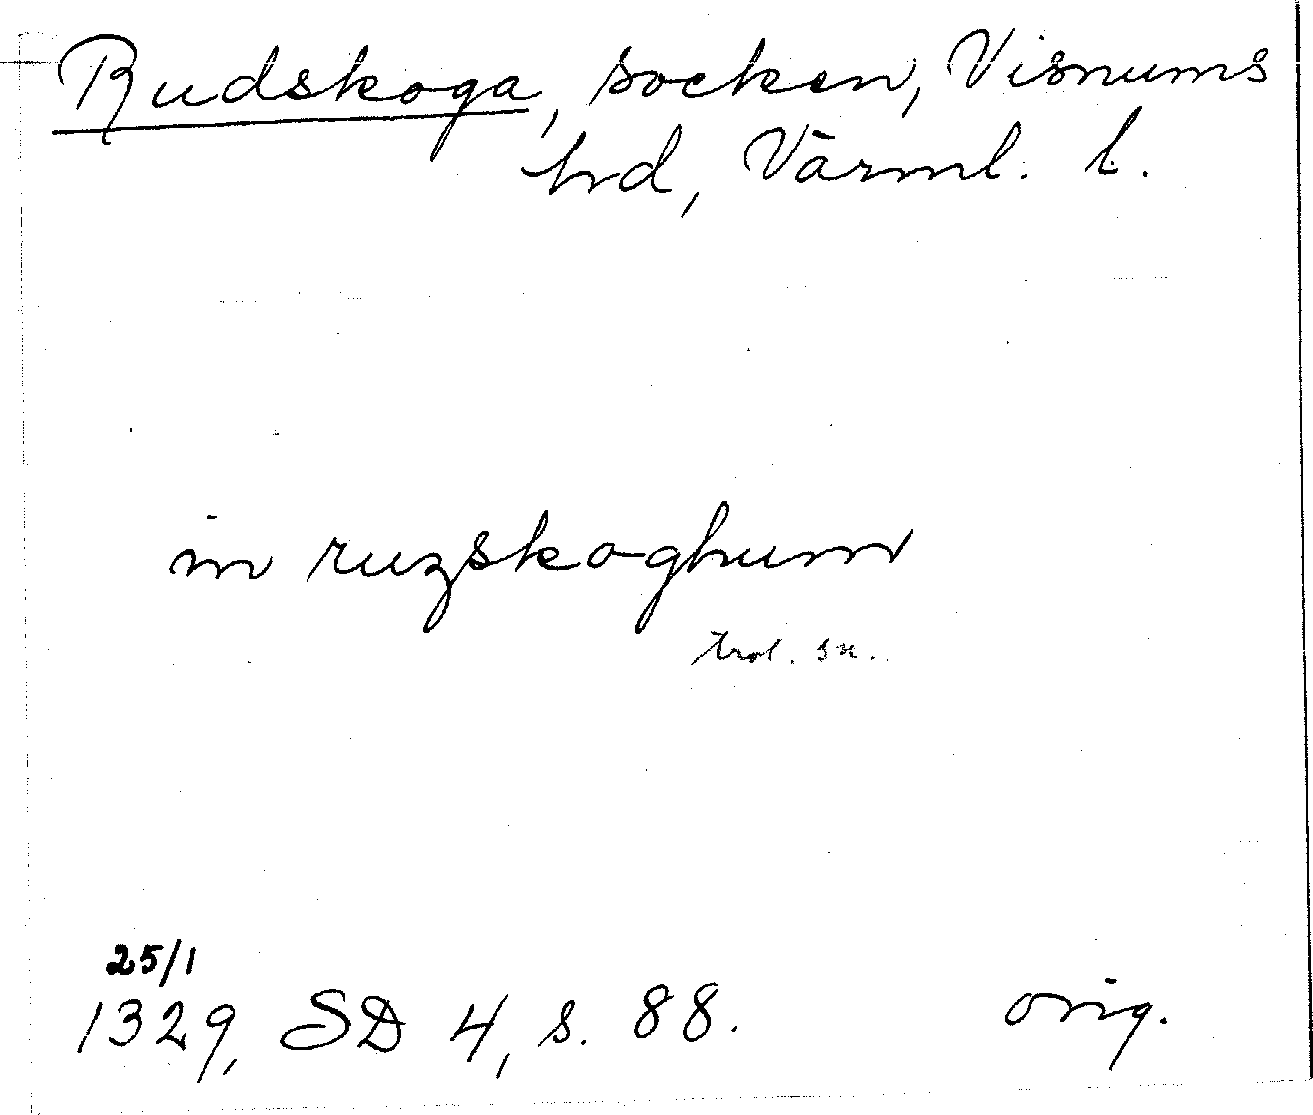 Rudskoga, socken, Visnums
hrd, Värml. l.
in ruzskoghum
trol. sn.
25/1
1329, SD 4, s. 88. orig.